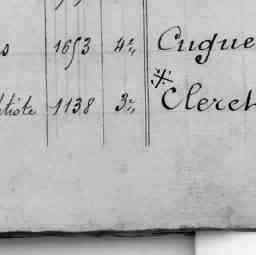 s 1653 4e, Cugue
ptiste 1138 3e, * Cleret